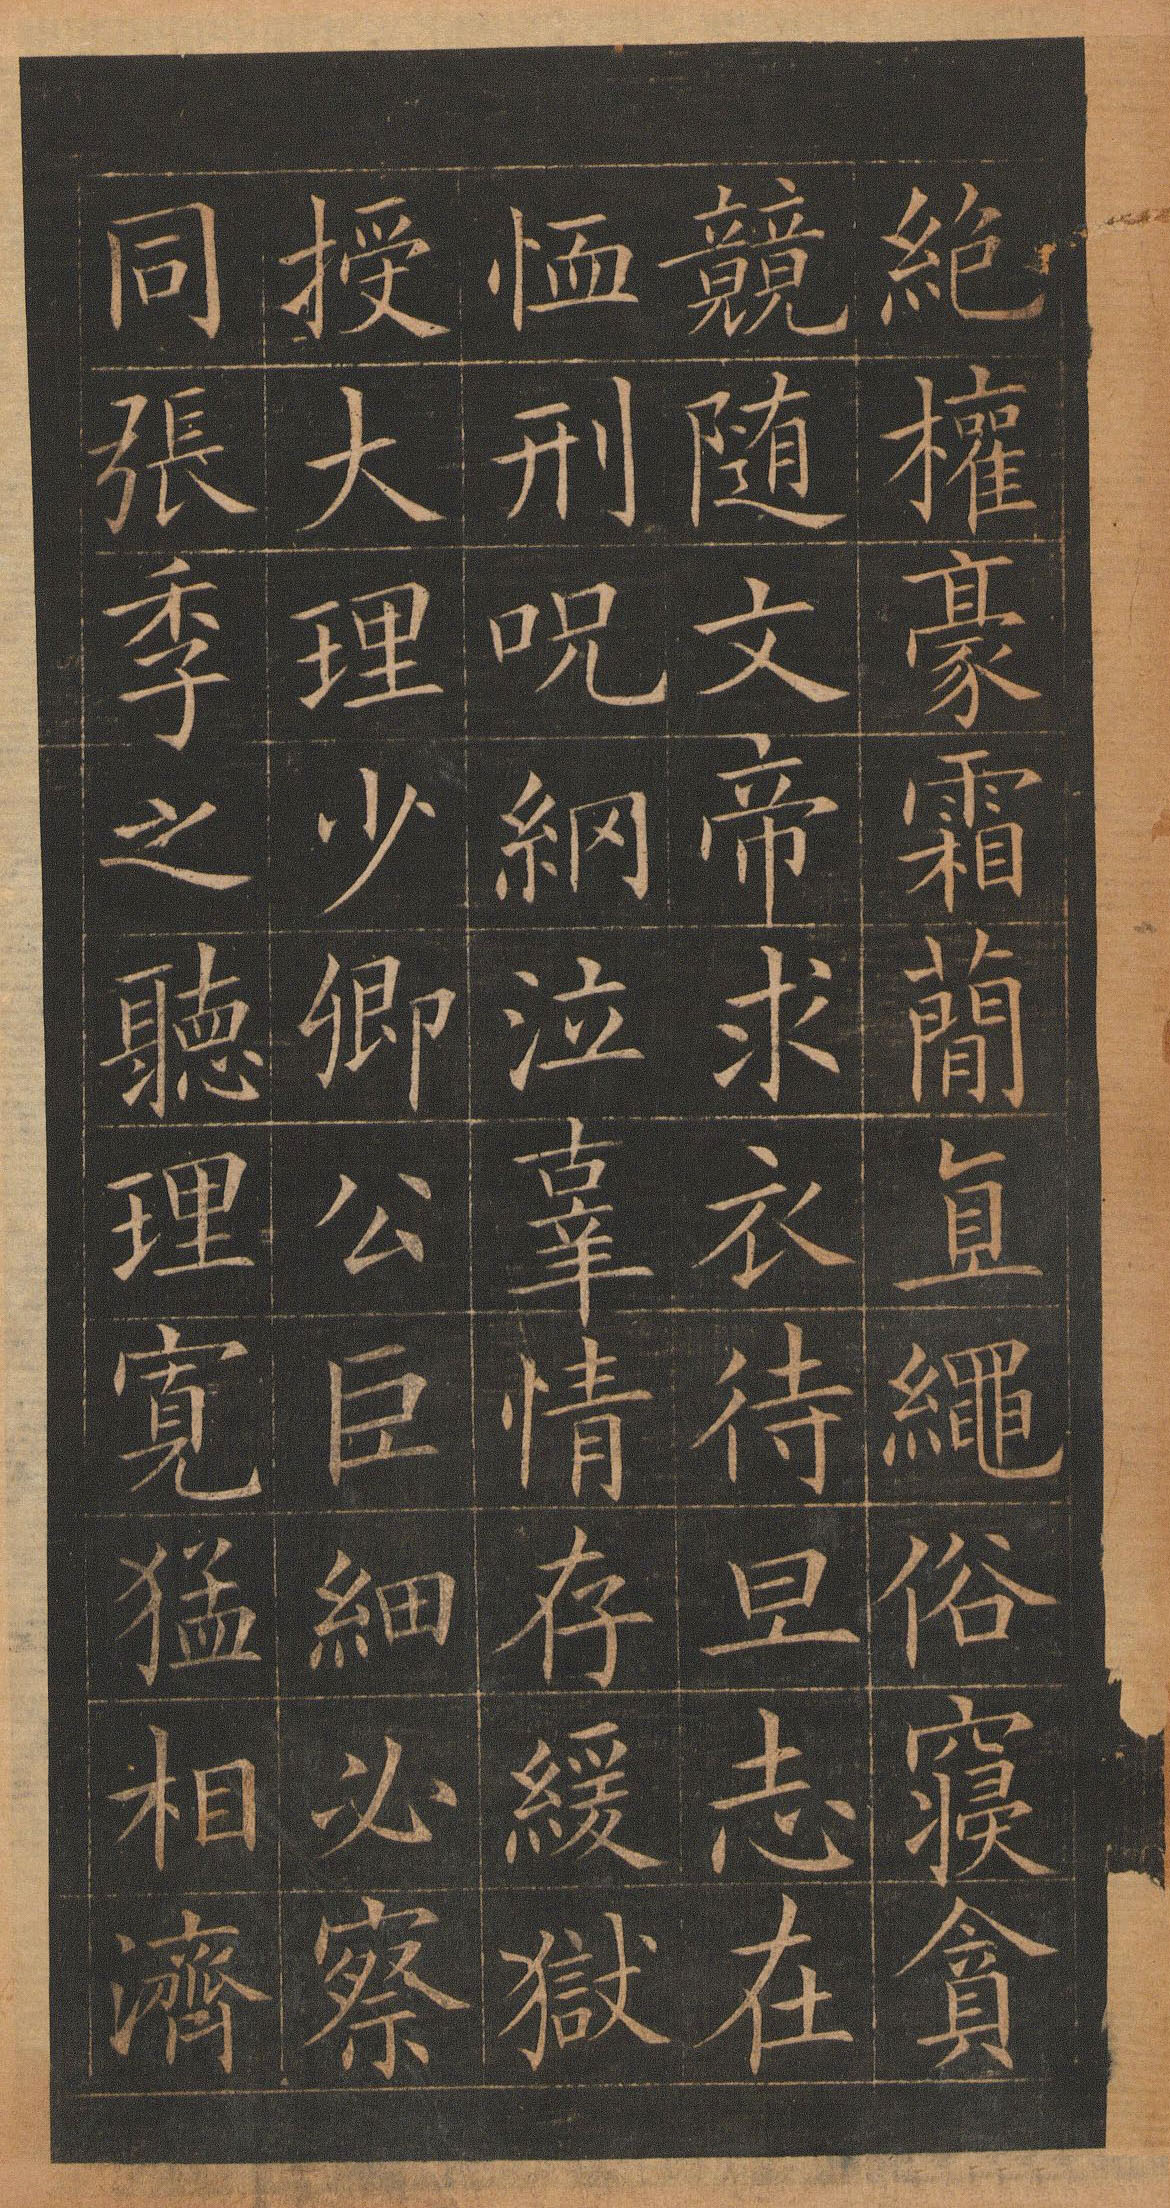 絕權豪霜蕳直繩俗寢貪
競隨文帝求衣待旦志在
恤刑呪網泣辜情存緩獄
授大理少卿公巨細必察
同張季之聽理寬猛相濟